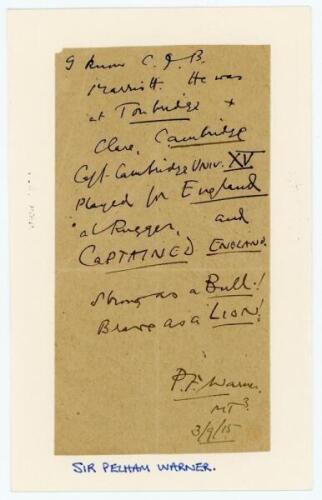 I know C. J. B.
Marriott. He was
at Tonbridge +
Clare, Cambridge
Capt. Cambridge UNIV. XV.
Played for England
at Rugger, and
CAPTAINED ENGLAND.
Strong as a Bull!
Brave as a LION!
P.F. Warner.
MT3
3/9/15
SIR PELHAM WARNER.